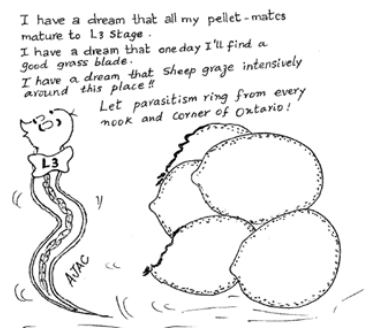 I have a dream that all my pellet-mates
mature to L3 stage.
I have a dream that one day I'll find a
good grass blade.
I have a dream that sheep graze intensively
around this place!!
Let parasitism ring from every
nook and corner of Ontario!
L3
AJAC